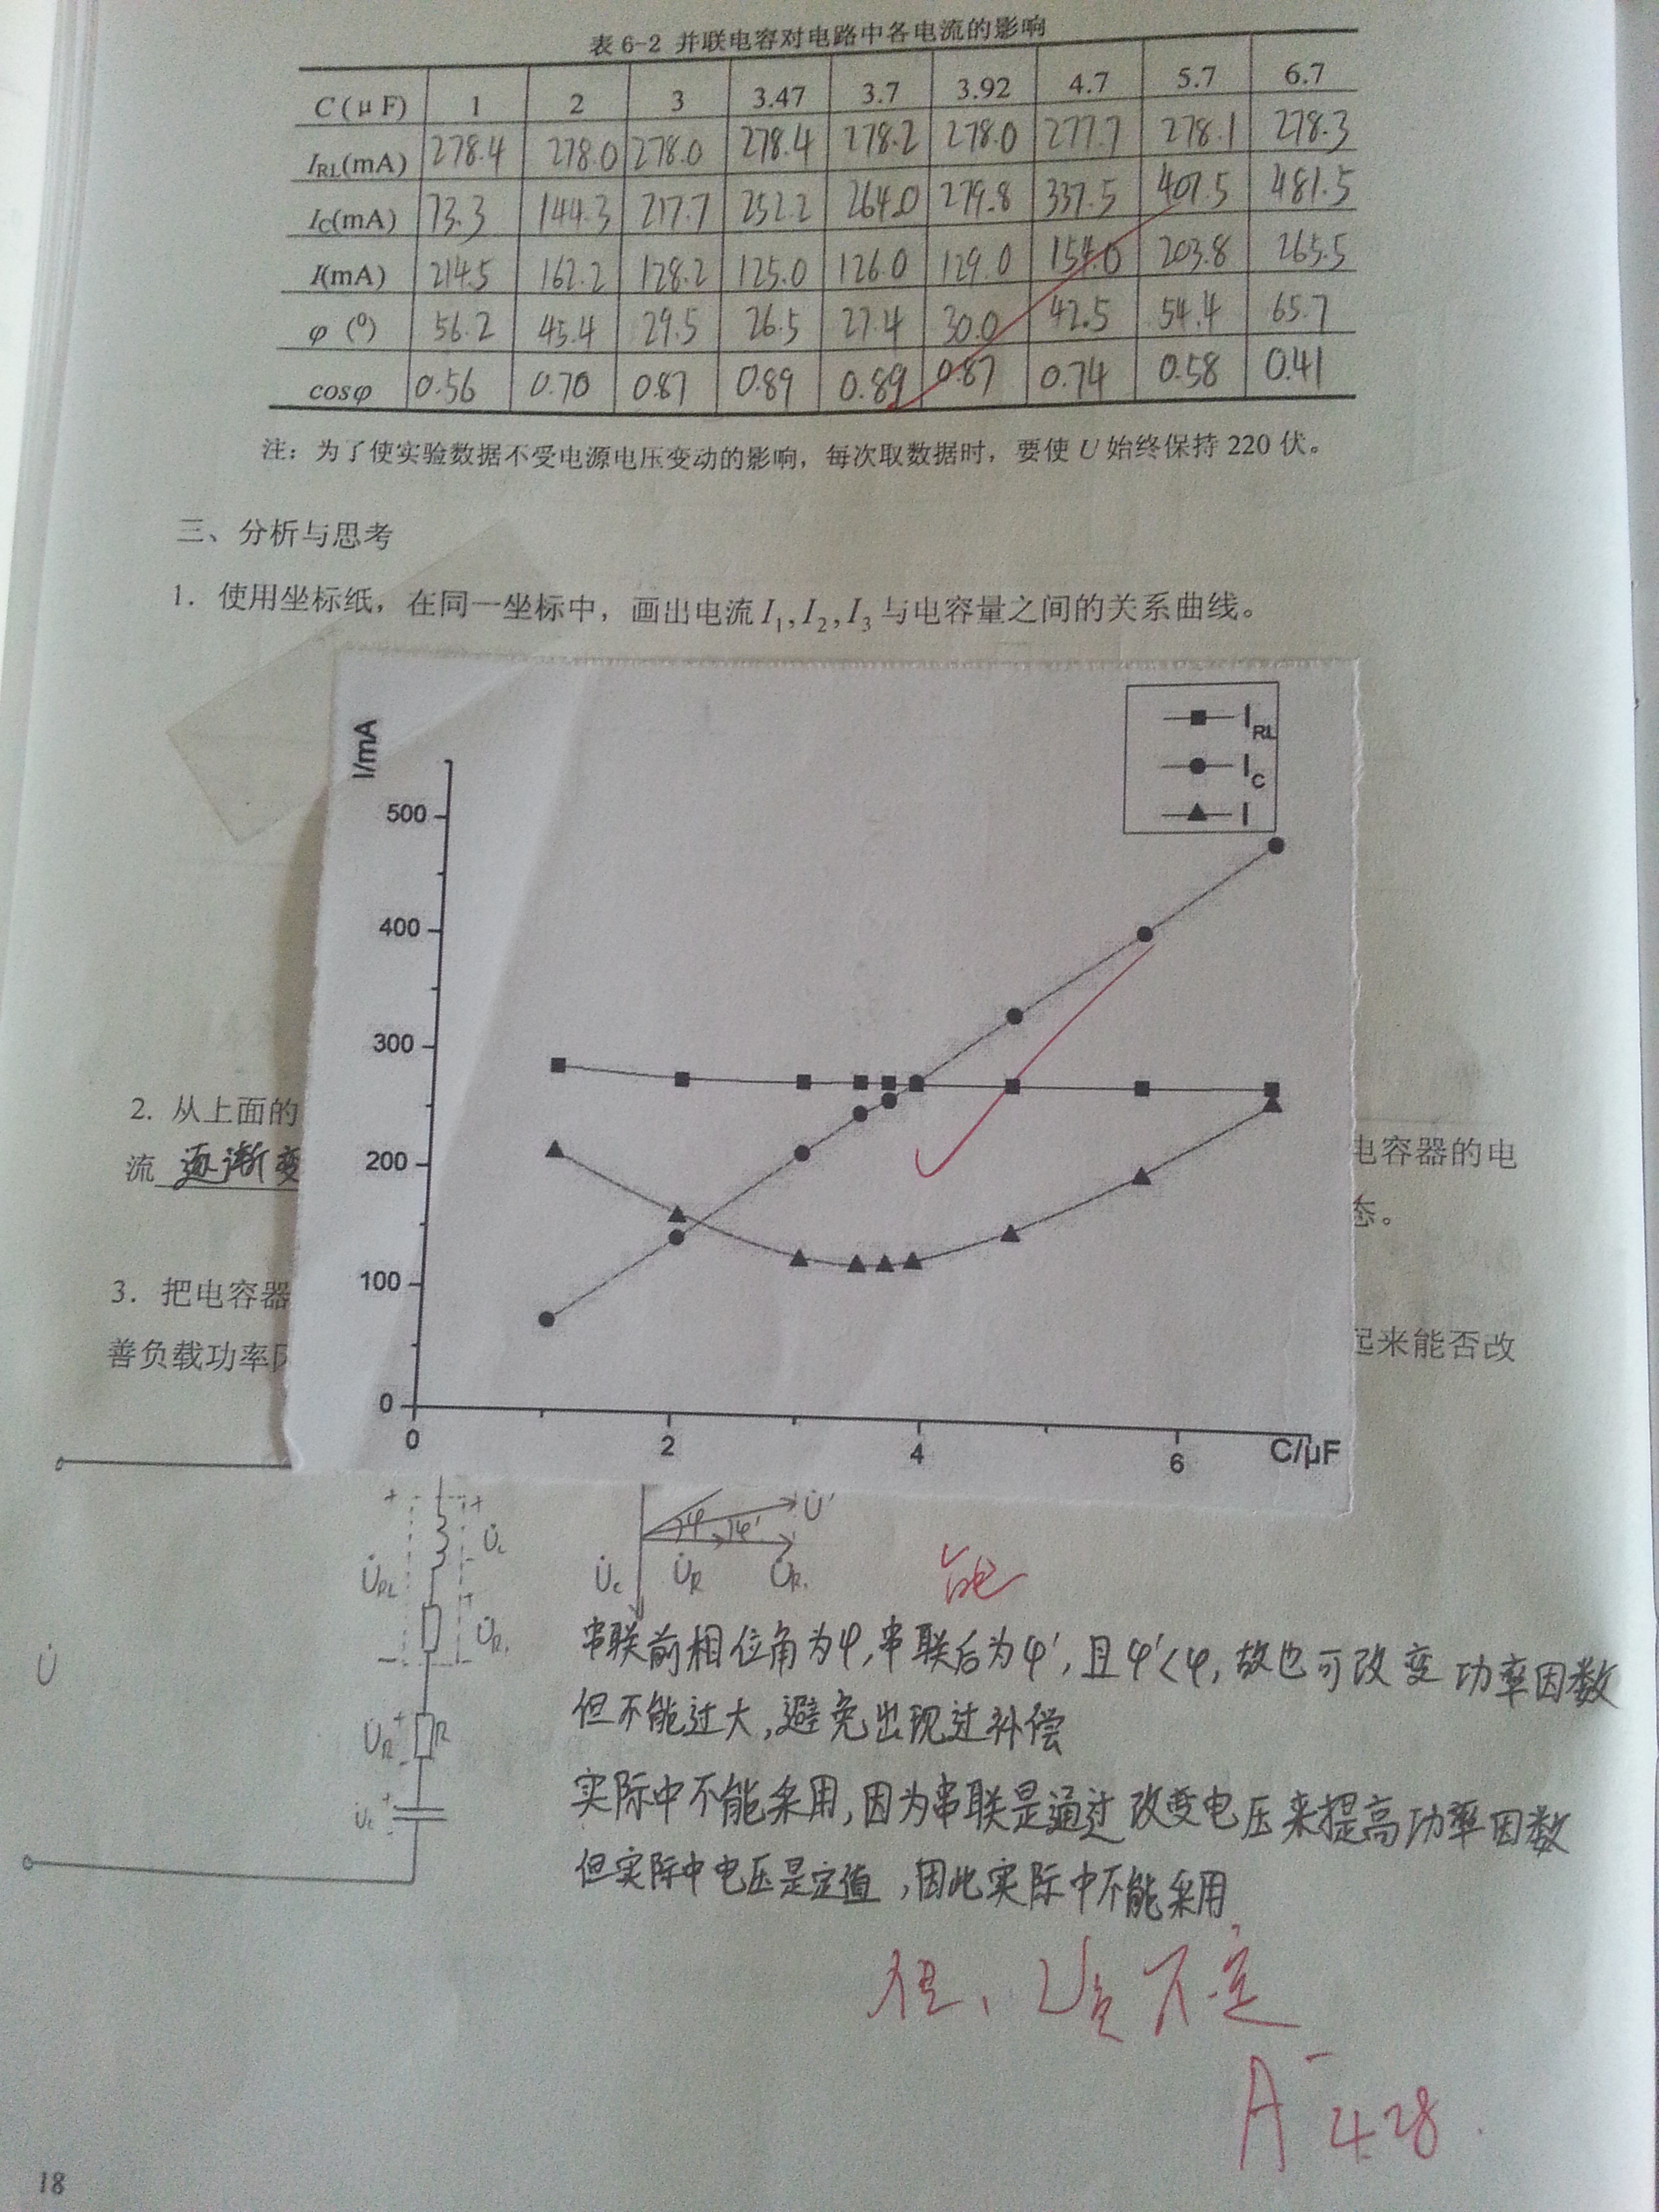 表 6-2 并联电容对电路中各电流的影响
C(μF) 1 2 3 3.47 3.7 3.92 4.7 5.7 6.7
IRL(mA) 278.4 278.0 278.0 278.4 278.2 278.0 277.7 278.1 278.3
IC(mA) 73.3 144.3 217.7 252.2 264.0 279.8 337.5 407.5 481.5
I(mA) 214.5 162.2 128.2 125.0 126.0 129.0 154.0 203.8 265.5
φ (°) 56.2 45.4 29.5 26.5 27.4 30.0 42.5 54.4 65.7
cosφ 0.56 0.70 0.87 0.89 0.89 0.87 0.74 0.58 0.41
注：为了使实验数据不受电源电压变动的影响，每次取数据时，要使 U 始终保持 220 伏。
三、分析与思考
1. 使用坐标纸，在同一坐标中，画出电流 I1,I2,I3 与电容量之间的关系曲线。
I/mA
IRL
IC
I
500
400
300
200
100
0
0 2 4 6 C/μF
2. 从上面的
电容器的电
流 逐渐变
态。
3. 把电容器
起来能否改
善负载功率
+ +
U̇L
U̇RL
+
U̇R1
U̇
U̇R + R
U̇c +
φ φ' U̇'
U̇c U̇R U̇R1
能
串联前相位角为φ,串联后为φ',且φ'<φ,故也可改变功率因数
但不能过大,避免出现过补偿
实际中不能采用,因为串联是通过改变电压来提高功率因数
但实际中电压是定值,因此实际中不能采用
但、U负不定
A⁻ 4.28.
18